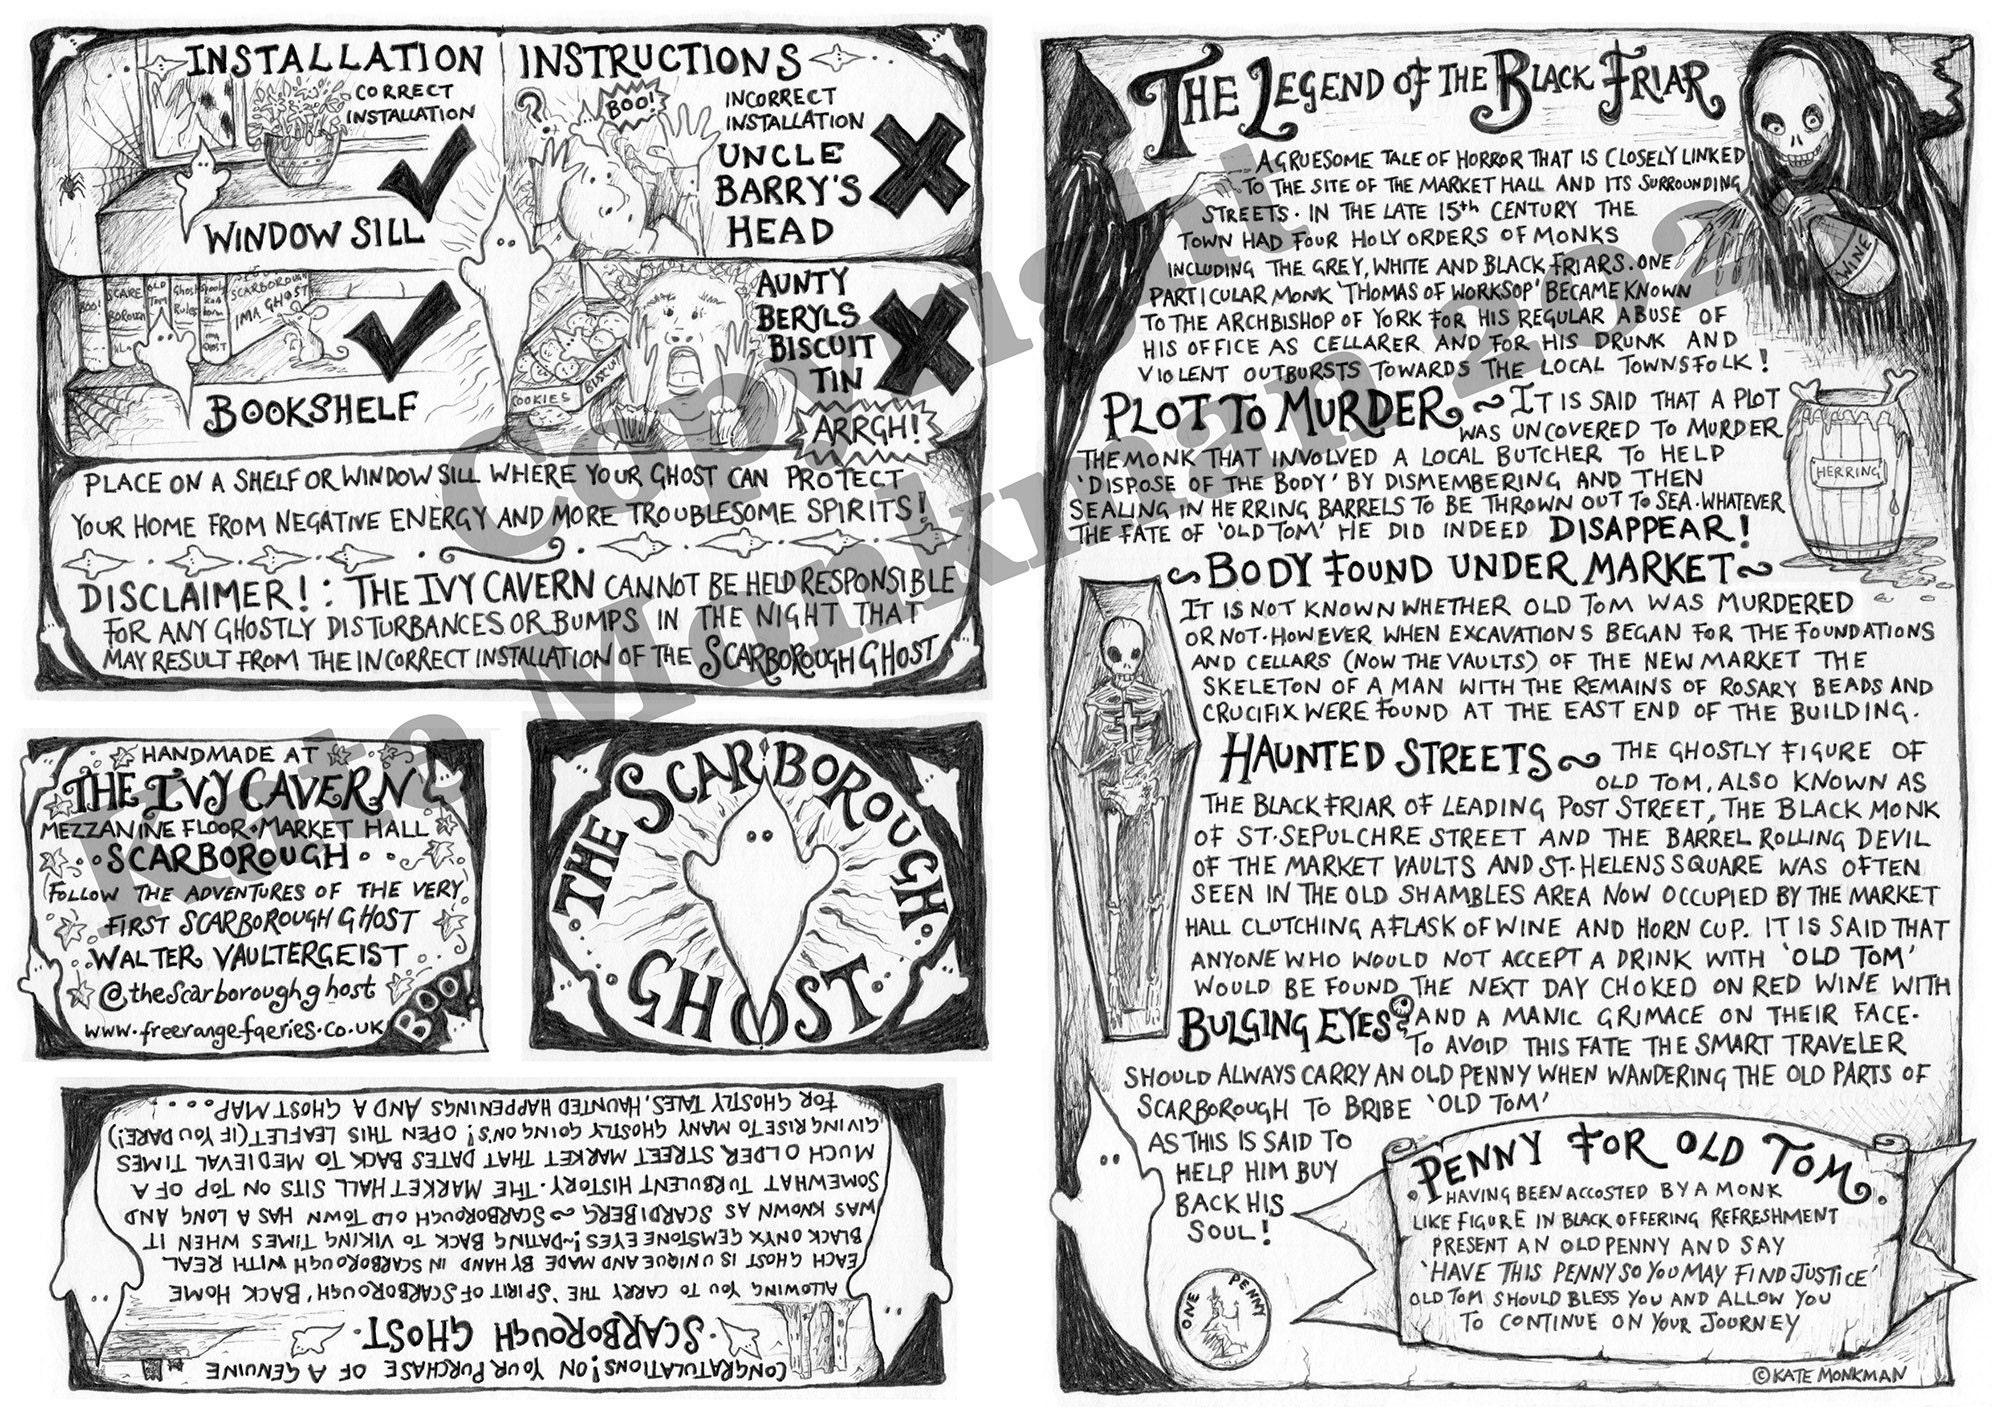 INSTALLATION INSTRUCTIONS
CORRECT
INSTALLATION
WINDOW SILL
?
BOO!
INCORRECT
INSTALLATION
UNCLE
BARRY'S
HEAD
BOO!
SCARE
BOROUGH
OLD
TOM
GHOST
RULES
SCARBOROUGH
IMA GHOST
BOOKSHELF
COOKIES
AUNTY
BERYLS
BISCUIT
TIN
ARRGH!
PLACE ON A SHELF OR WINDOW SILL WHERE YOUR GHOST CAN PROTECT
YOUR HOME FROM NEGATIVE ENERGY AND MORE TROUBLESOME SPIRITS!
DISCLAIMER! : THE IVY CAVERN CANNOT BE HELD RESPONSIBLE
FOR ANY GHOSTLY DISTURBANCES OR BUMPS IN THE NIGHT THAT
MAY RESULT FROM THE INCORRECT INSTALLATION OF THE SCARBOROUGH GHOST
HANDMADE AT
THE IVY CAVERN
MEZZANINE FLOOR • MARKET HALL
SCARBOROUGH
FOLLOW THE ADVENTURES OF THE VERY
FIRST SCARBOROUGH GHOST
WALTER VAULTERGEIST
@thescarboroughghost
www.freerange-faeries.co.uk
BOO!
THE SCARBOROUGH
GHOST
CONGRATULATIONS! ON YOUR PURCHASE OF A GENUINE
• SCARBOROUGH GHOST •
ALLOWING YOU TO CARRY THE 'SPIRIT OF SCARBOROUGH' BACK HOME
EACH GHOST IS UNIQUE AND MADE BY HAND IN SCARBOROUGH WITH REAL
BLACK ONYX GEMSTONE EYES! ~ DATING BACK TO VIKING TIMES WHEN IT
WAS KNOWN AS SCARDIBERG ~ SCARBOROUGH OLD TOWN HAS A LONG AND
SOMEWHAT TURBULENT HISTORY. THE MARKET HALL SITS ON TOP OF A
MUCH OLDER STREET MARKET THAT DATES BACK TO MEDIEVAL TIMES
GIVING RISE TO MANY GHOSTLY GOING ON'S! OPEN THIS LEAFLET (IF YOU DARE!)
FOR GHOSTLY TALES, HAUNTED HAPPENINGS AND A GHOST MAP....
THE LEGEND OF THE BLACK FRIAR
A GRUESOME TALE OF HORROR THAT IS CLOSELY LINKED
TO THE SITE OF THE MARKET HALL AND ITS SURROUNDING
STREETS. IN THE LATE 15th CENTURY THE
TOWN HAD FOUR HOLY ORDERS OF MONKS
INCLUDING THE GREY, WHITE AND BLACK FRIARS. ONE
PARTICULAR MONK 'THOMAS OF WORKSOP' BECAME KNOWN
TO THE ARCHBISHOP OF YORK FOR HIS REGULAR ABUSE OF
HIS OFFICE AS CELLARER AND FOR HIS DRUNK AND
VIOLENT OUTBURSTS TOWARDS THE LOCAL TOWNSFOLK!
WINE
PLOT TO MURDER ~ IT IS SAID THAT A PLOT
WAS UNCOVERED TO MURDER
THE MONK THAT INVOLVED A LOCAL BUTCHER TO HELP
'DISPOSE OF THE BODY' BY DISMEMBERING AND THEN
SEALING IN HERRING BARRELS TO BE THROWN OUT TO SEA. WHATEVER
THE FATE OF 'OLD TOM' HE DID INDEED DISAPPEAR!
HERRING
~ BODY FOUND UNDER MARKET ~
IT IS NOT KNOWN WHETHER OLD TOM WAS MURDERED
OR NOT. HOWEVER WHEN EXCAVATIONS BEGAN FOR THE FOUNDATIONS
AND CELLARS (NOW THE VAULTS) OF THE NEW MARKET THE
SKELETON OF A MAN WITH THE REMAINS OF ROSARY BEADS AND
CRUCIFIX WERE FOUND AT THE EAST END OF THE BUILDING.
HAUNTED STREETS ~ THE GHOSTLY FIGURE OF
OLD TOM, ALSO KNOWN AS
THE BLACK FRIAR OF LEADING POST STREET, THE BLACK MONK
OF ST. SEPULCHRE STREET AND THE BARREL ROLLING DEVIL
OF THE MARKET VAULTS AND ST. HELENS SQUARE WAS OFTEN
SEEN IN THE OLD SHAMBLES AREA NOW OCCUPIED BY THE MARKET
HALL CLUTCHING A FLASK OF WINE AND HORN CUP. IT IS SAID THAT
ANYONE WHO WOULD NOT ACCEPT A DRINK WITH 'OLD TOM'
WOULD BE FOUND THE NEXT DAY CHOKED ON RED WINE WITH
BULGING EYES AND A MANIC GRIMACE ON THEIR FACE.
TO AVOID THIS FATE THE SMART TRAVELER
SHOULD ALWAYS CARRY AN OLD PENNY WHEN WANDERING THE OLD PARTS OF
SCARBOROUGH TO BRIBE 'OLD TOM'
AS THIS IS SAID TO
HELP HIM BUY
BACK HIS
SOUL!
ONE PENNY
PENNY FOR OLD TOM
HAVING BEEN ACCOSTED BY A MONK
LIKE FIGURE IN BLACK OFFERING REFRESHMENT
PRESENT AN OLD PENNY AND SAY
'HAVE THIS PENNY SO YOU MAY FIND JUSTICE'
OLD TOM SHOULD BLESS YOU AND ALLOW YOU
TO CONTINUE ON YOUR JOURNEY
© KATE MONKMAN
Copyright
Kate Monkman 202